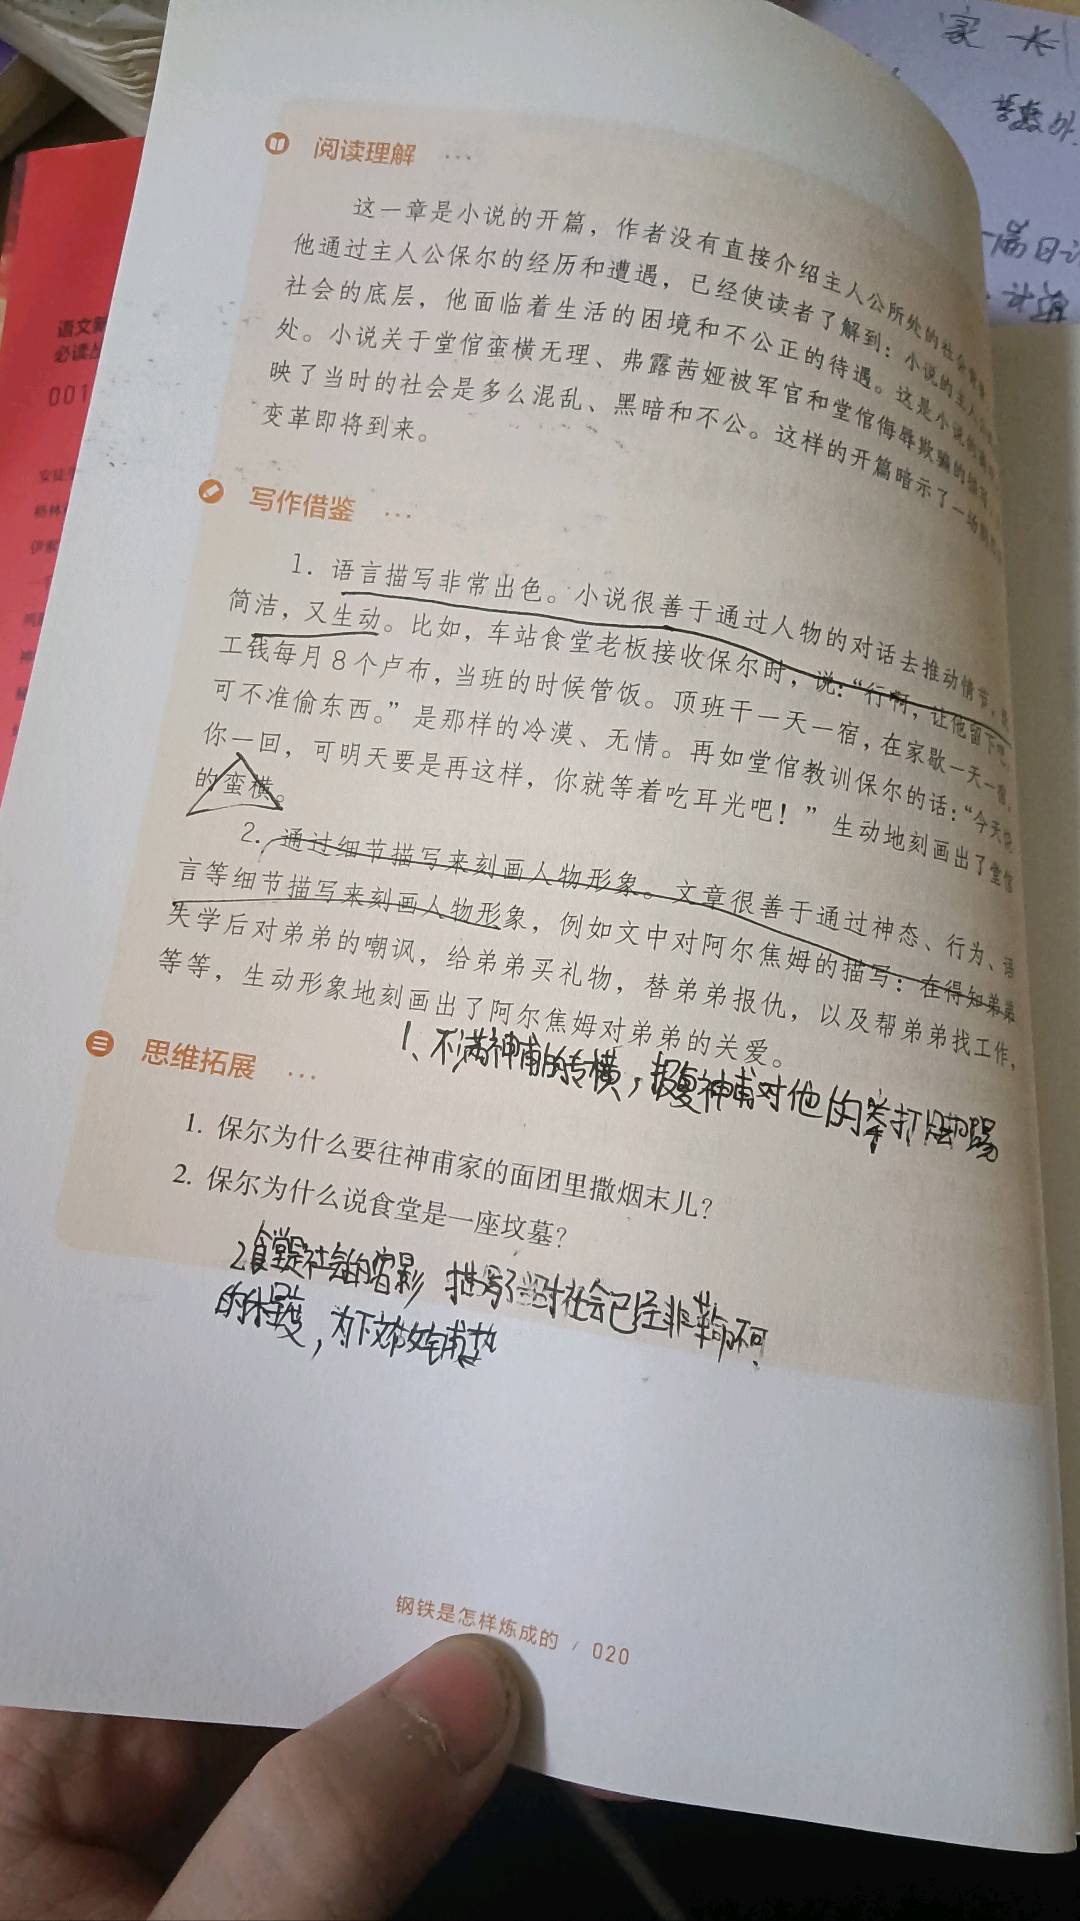 家长
语文新
必读丛
001
阅读理解 ...
这一章是小说的开篇，作者没有直接介绍主人公所处的社会
他通过主人公保尔的经历和遭遇，已经使读者了解到：小说的主人公
社会的底层，他面临着生活的困境和不公正的待遇。这是小说的
处。小说关于堂倌蛮横无理、弗露茜娅被军官和堂倌侮辱欺骗的描写，
映了当时的社会是多么混乱、黑暗和不公。这样的开篇暗示了一场
变革即将到来。
写作借鉴 ...
1. 语言描写非常出色。小说很善于通过人物的对话去推动情节，
简洁，又生动。比如，车站食堂老板接收保尔时，说：“行啊，让他留下吧。
工钱每月8个卢布，当班的时候管饭。顶班干一天一宿，在家歇一天一宿，
可不准偷东西。”是那样的冷漠、无情。再如堂倌教训保尔的话：“今天
你一回，可明天要是再这样，你就等着吃耳光吧！”生动地刻画出了堂倌
的蛮横。
2. 通过细节描写来刻画人物形象。文章很善于通过神态、行为、语
言等细节描写来刻画人物形象，例如文中对阿尔焦姆的描写：在得知弟弟
失学后对弟弟的嘲讽，给弟弟买礼物，替弟弟报仇，以及帮弟弟找工作，
等等，生动形象地刻画出了阿尔焦姆对弟弟的关爱。
1、不满神甫的专横，报复神甫对他的拳打脚踢
思维拓展 ...
1. 保尔为什么要往神甫家的面团里撒烟末儿？
2. 保尔为什么说食堂是一座坟墓？
2食堂是社会的缩影 描写了当时社会已经非革命不可
的程度，为下文故事铺垫
钢铁是怎样炼成的 / 020